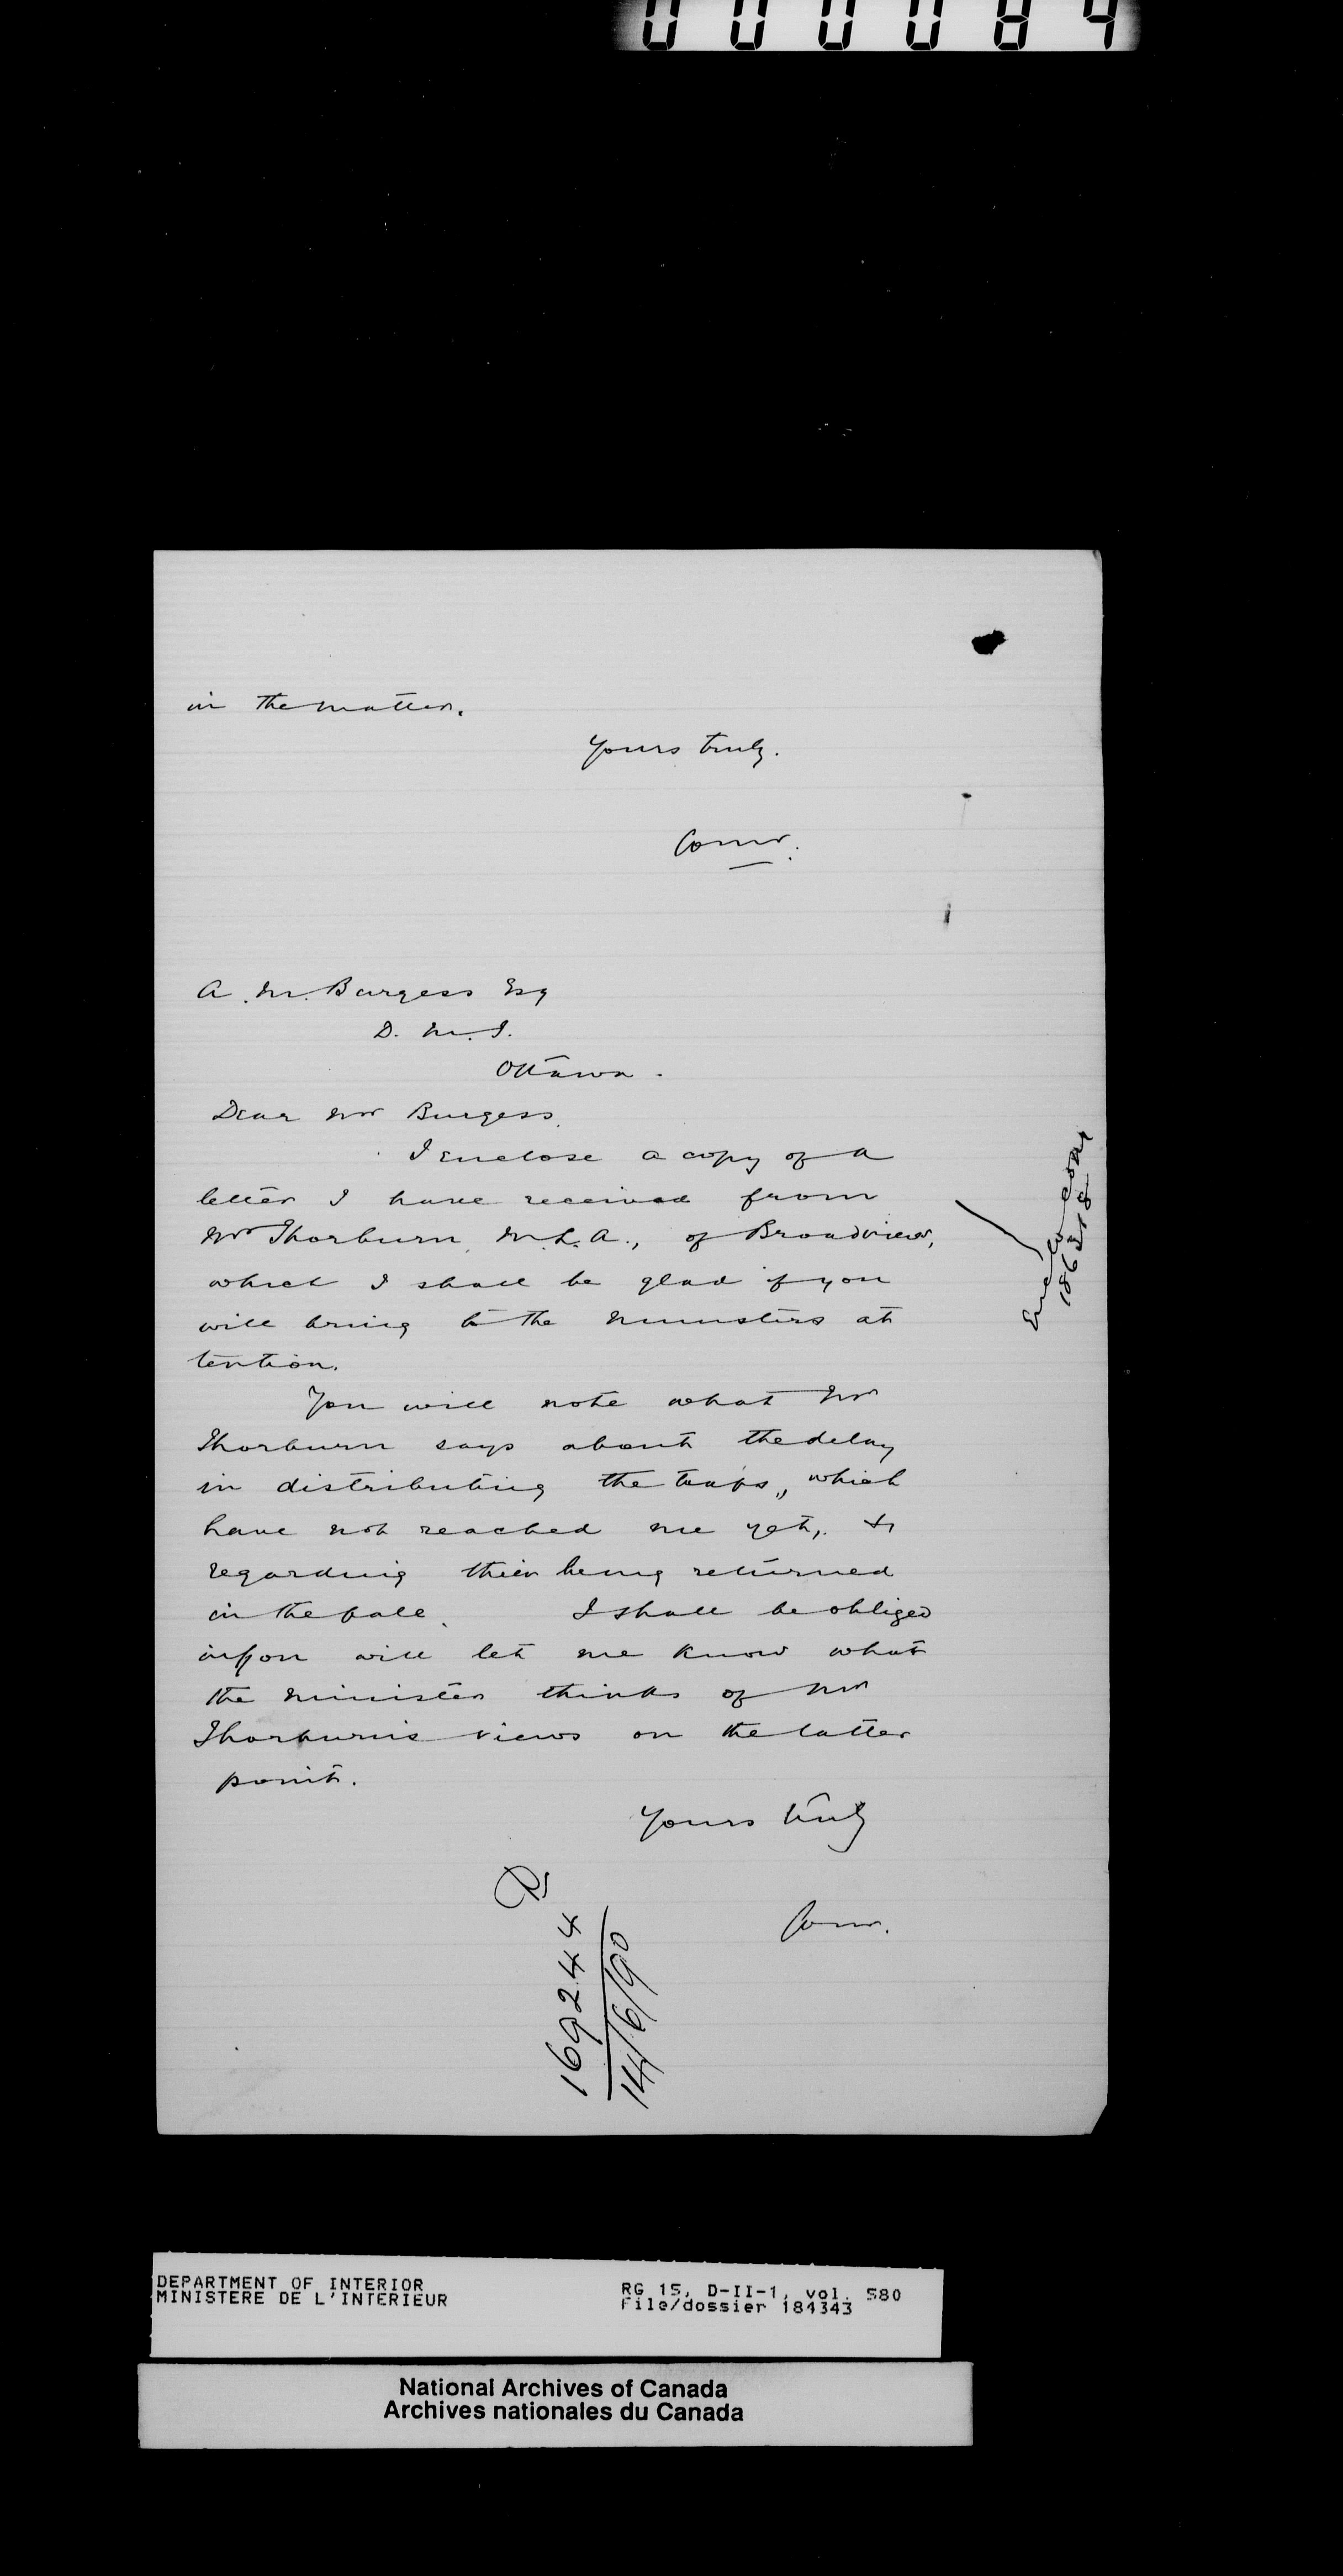 000084
in the matter.
Yours truly.
Comr.
A. M. Burgess Esq
D. M. I.
Ottawa.
Dear Mr Burgess.
I enclose a copy of a
letter I have received from
Mr Thorburn, M.L.A., of Broadview,
which I shall be glad if you
will bring to the Ministers at
tention.
You will note what Mr
Thorburn says about the delay
in distributing the traps, which
have not reached me yet, &
regarding their being returned
in the fall. I shall be obliged
if you will let me know what
the Minister thinks of Mr
Thorburn's views on the latter
point.
Yours truly
Comr.
169244
14/6/90
DEPARTMENT OF INTERIOR
MINISTERE DE L'INTERIEUR
RG 15, D-II-1, vol. 580
File/dossier 184343
National Archives of Canada
Archives nationales du Canada